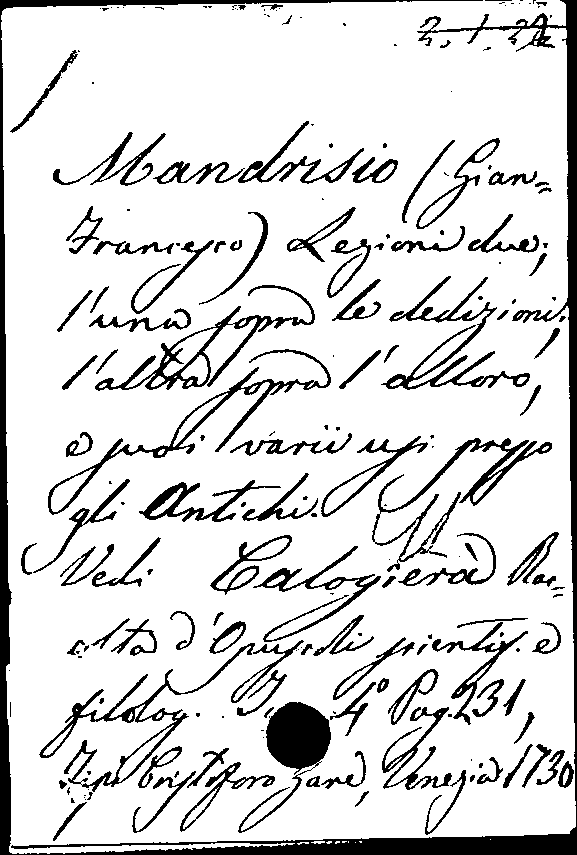 2. 1. 22
Mandrisio (Gian=
Francesco) Lezioni due;
l'una sopra le dedizioni;
l'altra sopra l'alloro,
e suoi varii usi presso
gli Antichi.
Vedi Calogierà Rac=
olta d'Opuscoli scientif. e
filolog. T. 4º Pag. 231,
Tip. Cristoforo Zane, Venezia 1730